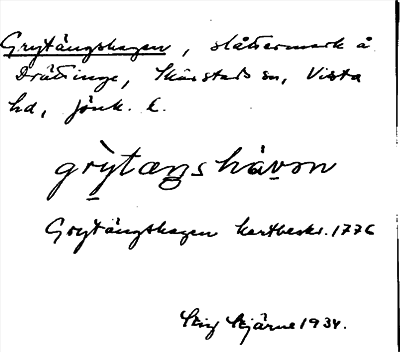 Grytängshagen, slåttermark å
Drättinge, Skärstads sn, Vista
hd, Jönk. l.
grỳtæŋshàvɔn
Grytängshagen kartbeskr. 1776
Stig Bjärne 1934.